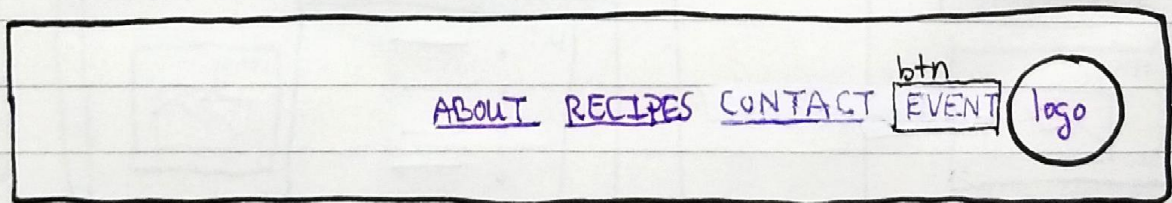 btn
ABOUT RECIPES CONTACT EVENT logo